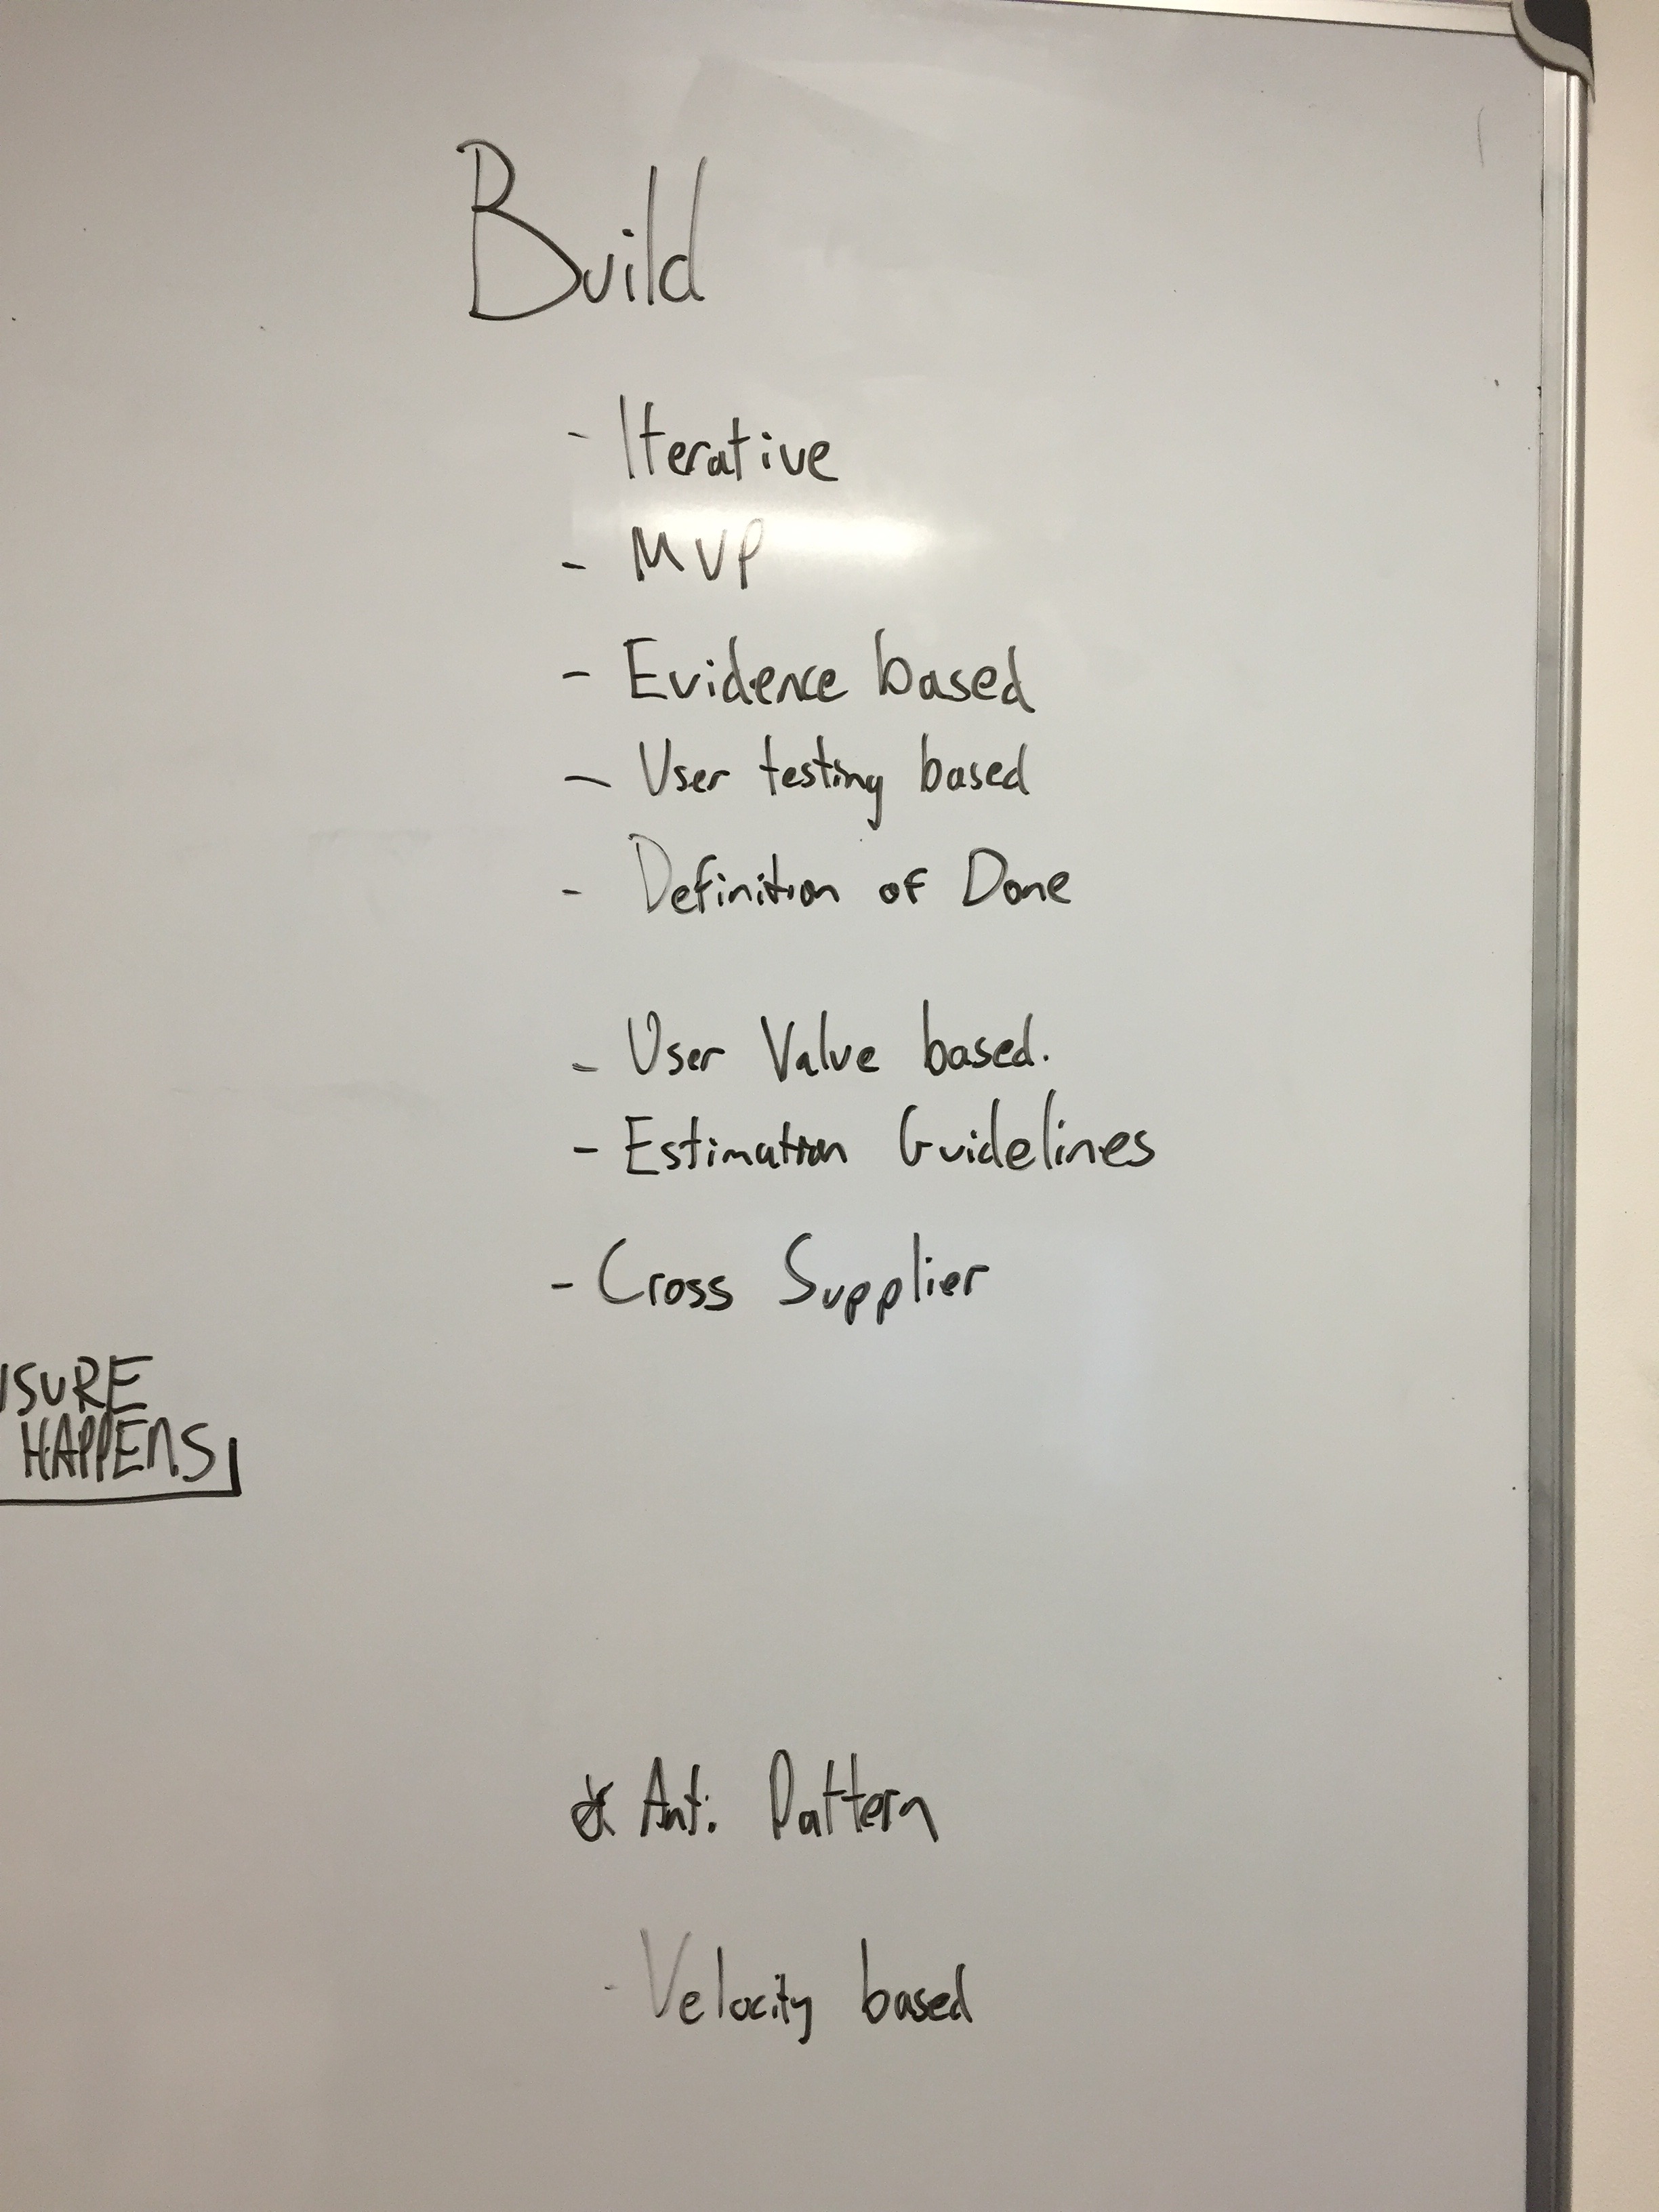 Build
- Iterative
- MVP
- Evidence based
- User testing based
- Definition of Done
- User Value based.
- Estimation Guidelines
- Cross Supplier
HAPPENS
* Anti Pattern
- Velocity based